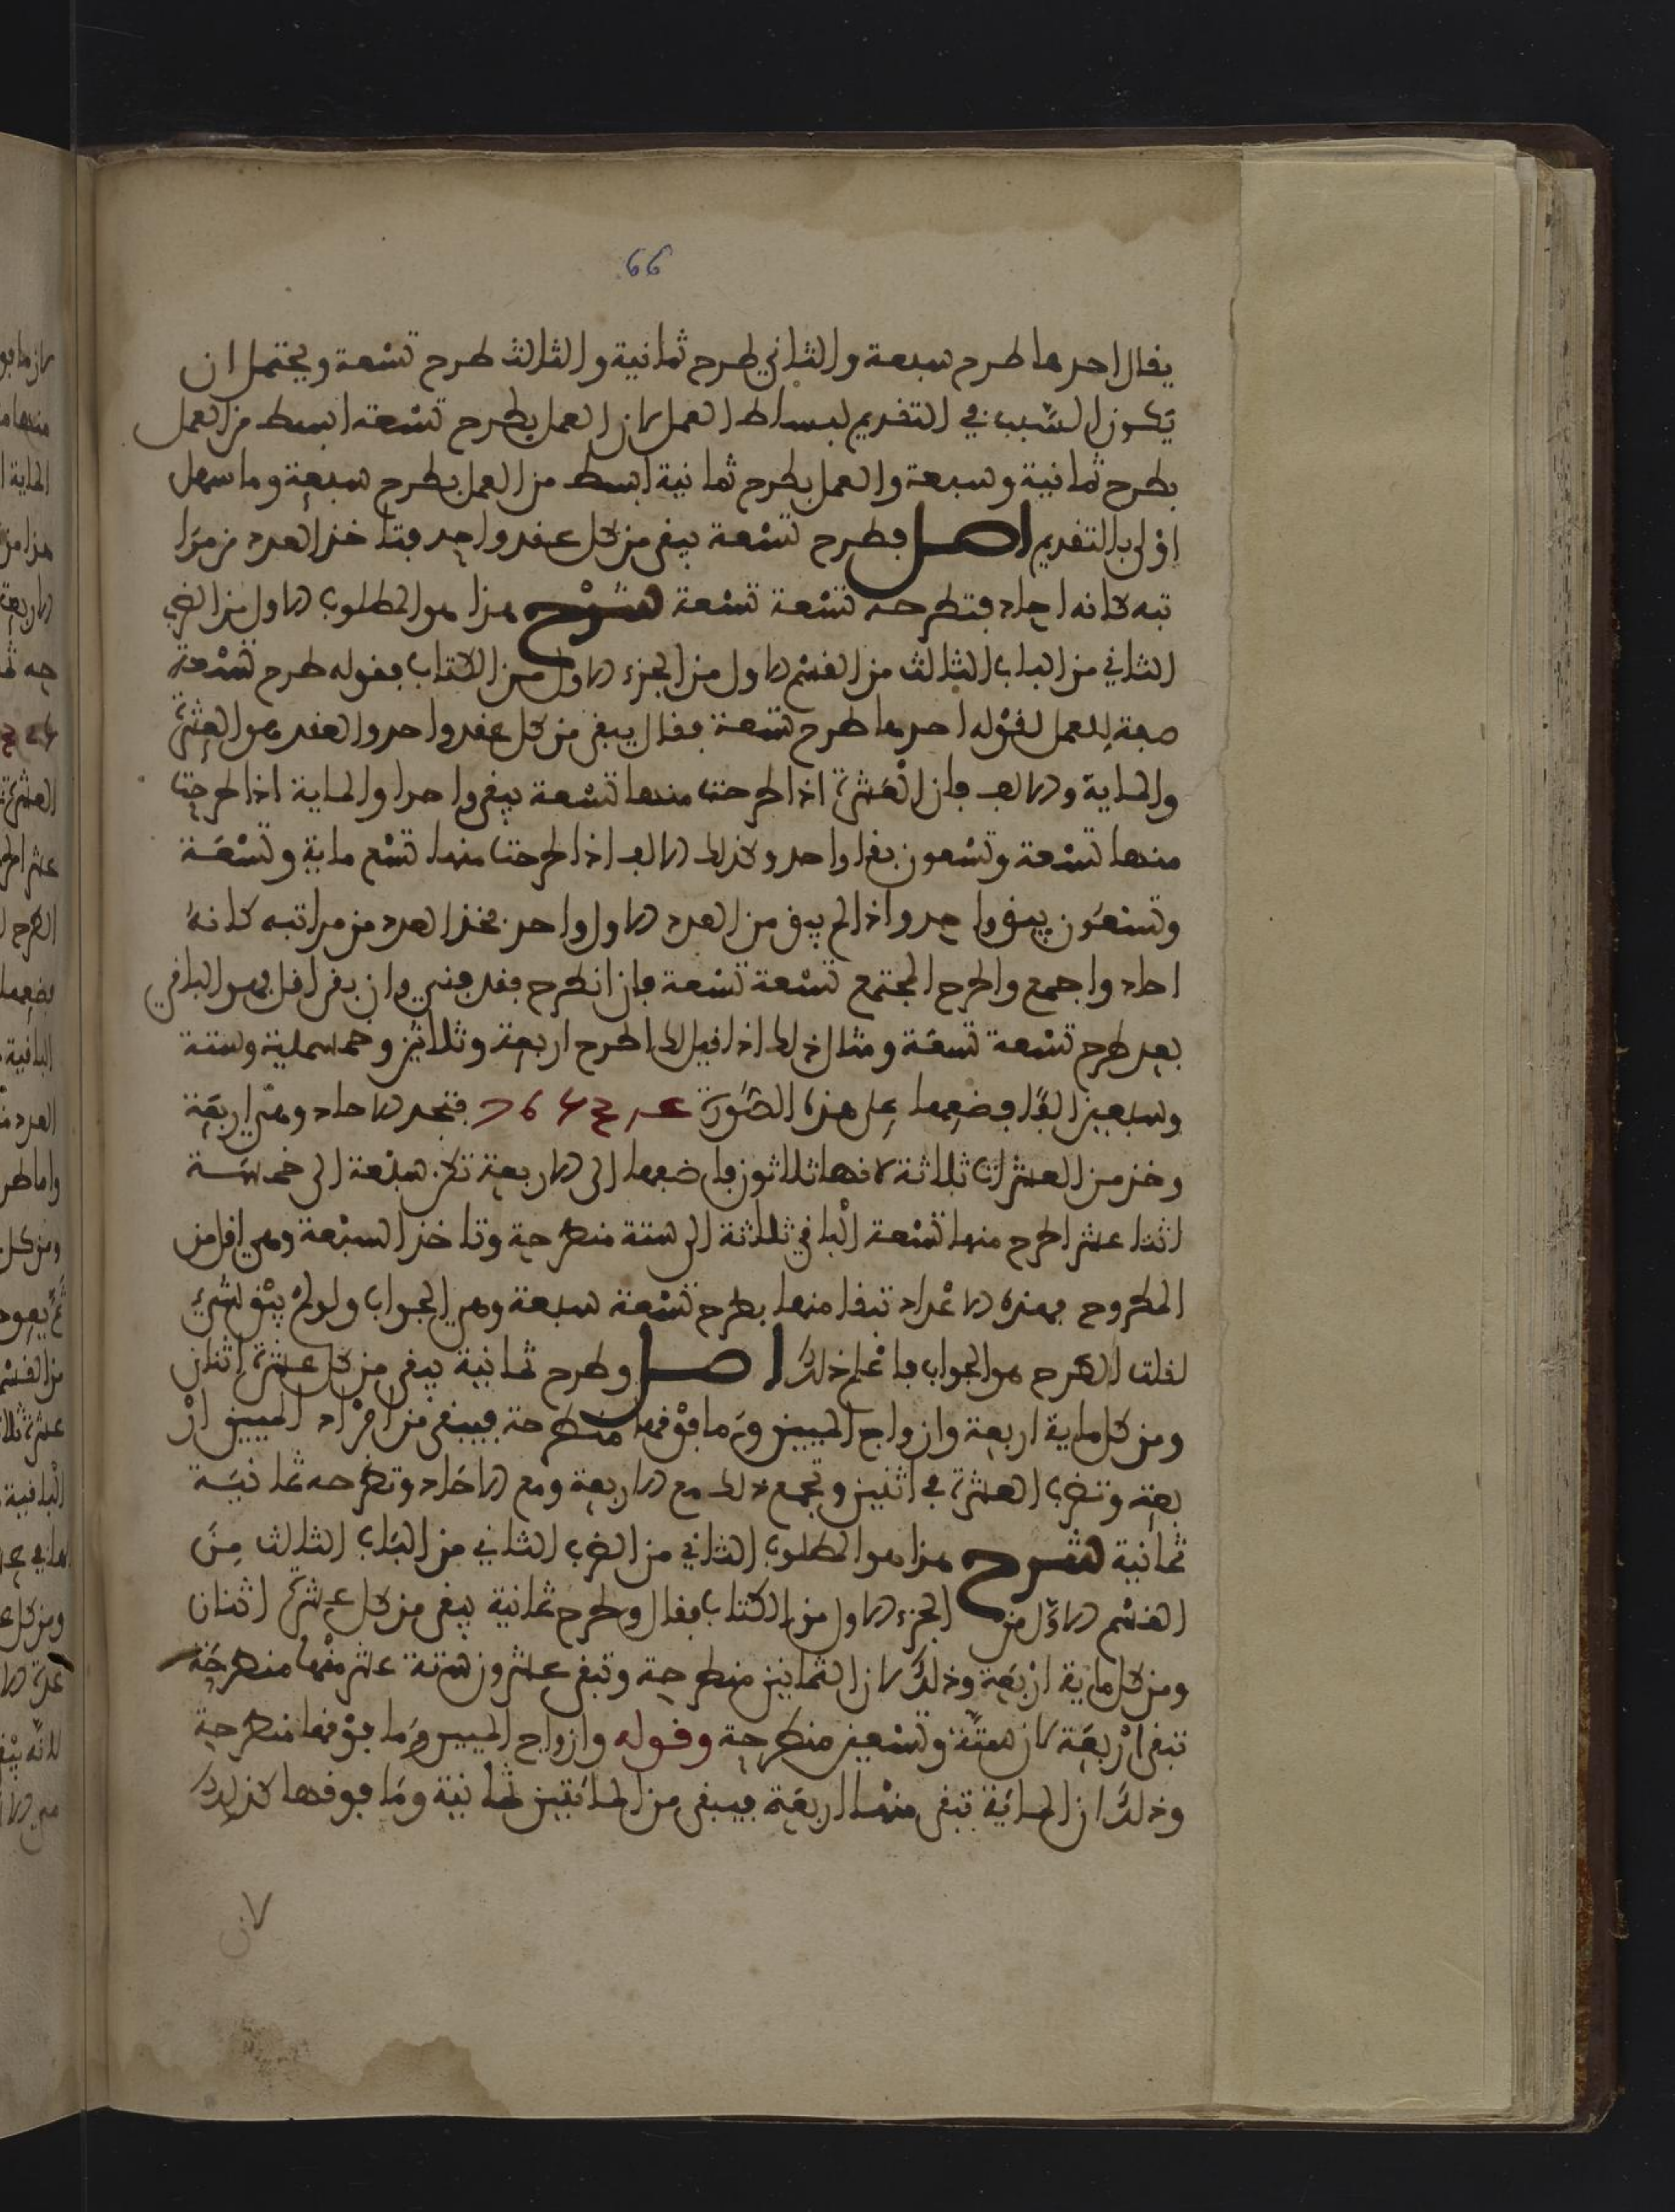 66
يقال احدها طرح سبعة والثاني طرح ثمانية والثالث طرح تسعة ويحتمل ان
يكون السبب في التقديم لبساط العمل لان العمل بطرح تسعة ابسط من العمل
بطرح ثمانية وسبعة والعمل بطرح ثمانية ابسط من العمل بطرح سبعة وما سهل
اولى بالتقديم اصل فطرح تسعة يبقى من كل عقد واحد فتاخذ العدد من مرا
تبه كانه احاد فتطرحه تسعة تسعة شرح هذا هو المطلوب الاول من الضرب
الثاني من الباب الثالث من القسم الاول من الجزء الاول من الكتاب فقوله طرح تسعة
صفة للعمل لقوله احدها طرح تسعة فقال يبقى من كل عقد واحد والعقد هو العشرة
والماية والالف فان العشرة اذا طرحت منها تسعة يبقى واحدا والماية اذا طرحت
منها تسعة وتسعون بقا واحد وكذلك الالف اذا طرحت منها تسع ماية وتسعة
وتسعون يبقى واحد واذا لم يبق من العدد الاول واحد فخذ العدد من مراتبه كانه
احاد واجمع واطرح المجتمع تسعة تسعة فان انطرح فقد فني وان بقي اقل فهو الباقي
بعد طرح تسعة تسعة ومثال ذلك اذا قيل لك اطرح اربعة وثلاثين وخمسماية وستة
وسبعين الفا فضعها على هذه الصورة فتجد الاحاد وهي اربعة
وخذ من العشرات ثلاثة لانها ثلاثون فاضفها الى الاربعة تكن سبعة الى خمسة
اثنا عشر اطرح منها تسعة الباقي ثلاثة الى ستة منطرحة وتاخذ السبعة وهي اقل من
المطروح فهذه الاعداد تبقا منها بطرح تسعة سبعة وهي الجواب ولو لم يبق شيء
لقلت الطرح هو الجواب فاعلم ذلك اصل وطرح ثمانية يبقى من كل عشرة اثنان
ومن كل ماية اربعة وازواج الميين وما فوقها منطرحة فيبقى من افراد الميين ار
بعة وتضرب العشرة في اثنين وتجمع ذلك مع الاربعة ومع الاحاد وتطرحه ثمانية
ثمانية شرح هذا هو المطلوب الثاني من الضرب الثاني من الباب الثالث من
القسم الاول من الجزء الاول من الكتاب فقال وطرح ثمانية يبقى من كل عشرة اثنان
ومن كل ماية اربعة وذلك لان الثمانين منطرحة وتبقى عشرون ستة عشر منها منطرحة
تبقى اربعة لان ستة وتسعين منطرحة وقوله وازواج الميين وما فوقها منطرحة
وذلك ان الماية تبقى منها اربعة فيبقى من المائتين ثمانية وما فوقها كذلك
لان